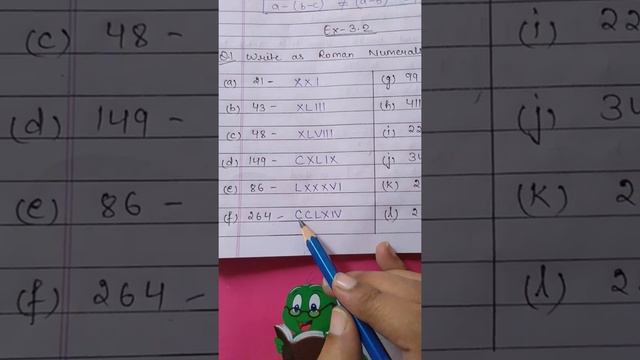 a-(b-c) ≠ (a-b)
Ex-3.2
Q1 Write as Roman Numerals
(a) 21 - XXI
(g) 99
(b) 43 - XLIII
(h) 411
(c) 48 - XLVIII
(i) 22
(d) 149 - CXLIX
(j) 34
(e) 86 - LXXXVI
(k) 2
(f) 264 - CCLXIV
(l) 2
(c) 48 -
(d) 149 -
(e) 86 -
(f) 264 -
(i) 22
(j) 34
(k) 2
(l) 2